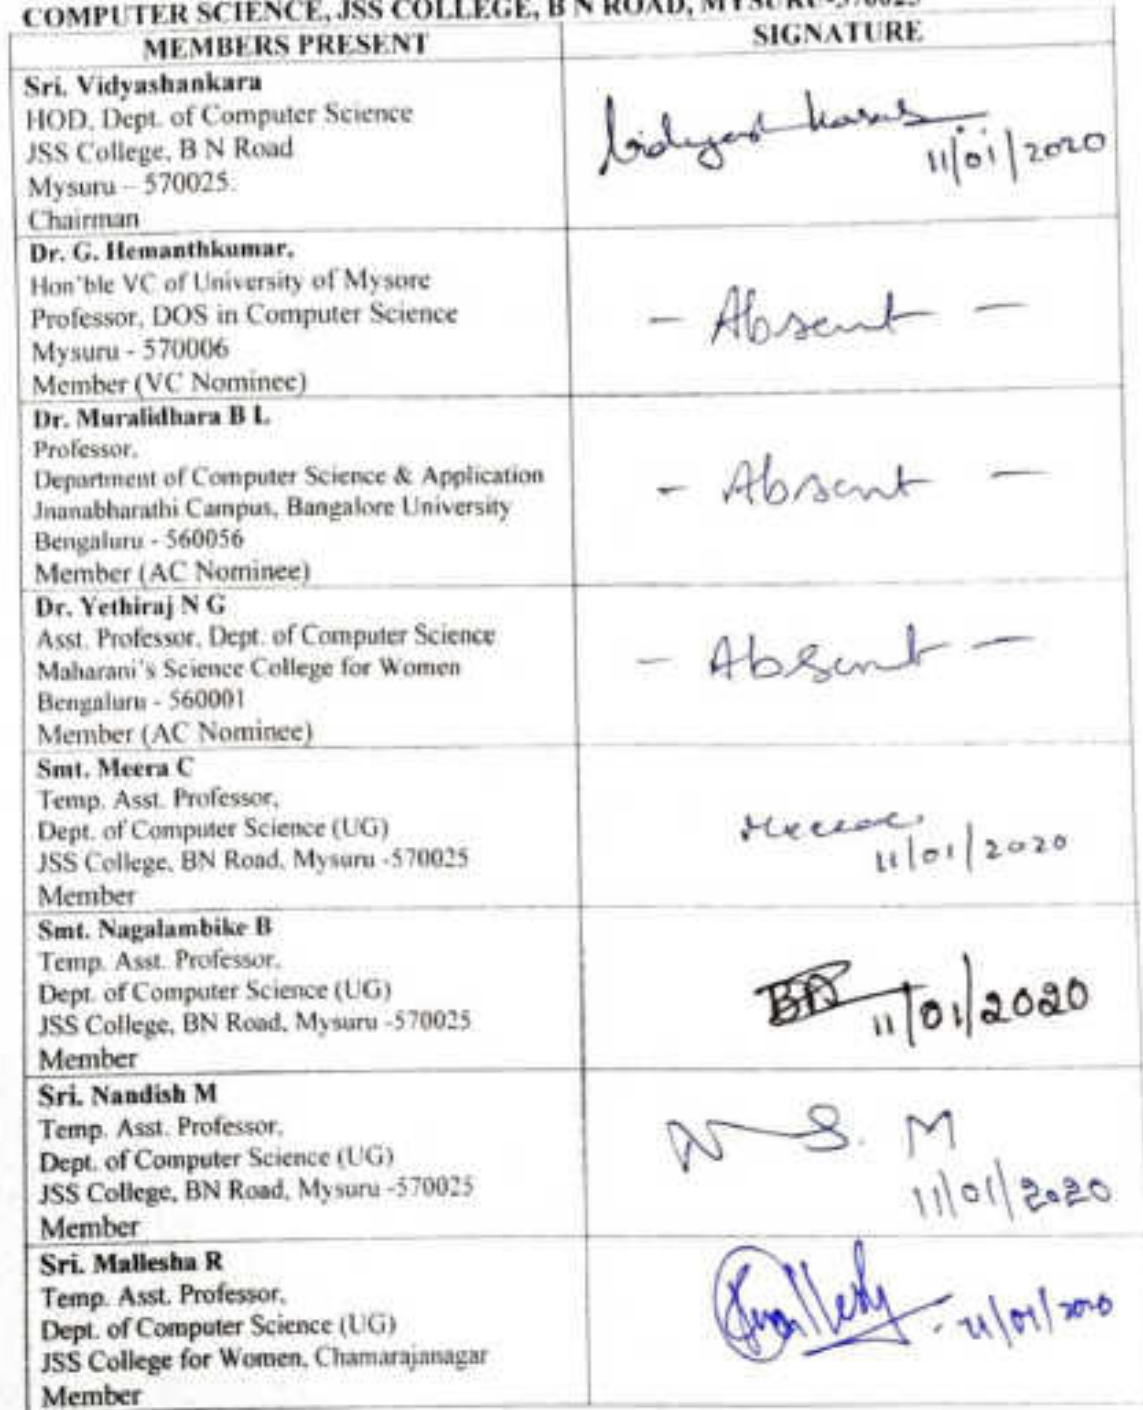 COMPUTER SCIENCE, JSS COLLEGE, B N ROAD, MYSURU-570025
MEMBERS PRESENT
SIGNATURE
Sri. Vidyashankara
HOD, Dept. of Computer Science
JSS College, B N Road
Mysuru – 570025.
Chairman
11/01/2020
Dr. G. Hemanthkumar,
Hon'ble VC of University of Mysore
Professor, DOS in Computer Science
Mysuru - 570006
Member (VC Nominee)
- Absent -
Dr. Muralidhara B L
Professor,
Department of Computer Science & Application
Jnanabharathi Campus, Bangalore University
Bengaluru - 560056
Member (AC Nominee)
- Absent -
Dr. Yethiraj N G
Asst. Professor, Dept. of Computer Science
Maharani's Science College for Women
Bengaluru - 560001
Member (AC Nominee)
- Absent -
Smt. Meera C
Temp. Asst. Professor,
Dept. of Computer Science (UG)
JSS College, BN Road, Mysuru -570025
Member
11/01/2020
Smt. Nagalambike B
Temp. Asst. Professor,
Dept. of Computer Science (UG)
JSS College, BN Road, Mysuru -570025
Member
11/01/2020
Sri. Nandish M
Temp. Asst. Professor,
Dept. of Computer Science (UG)
JSS College, BN Road, Mysuru -570025
Member
11/01/2020
Sri. Mallesha R
Temp. Asst. Professor,
Dept. of Computer Science (UG)
JSS College for Women, Chamarajanagar
Member
11/01/2020